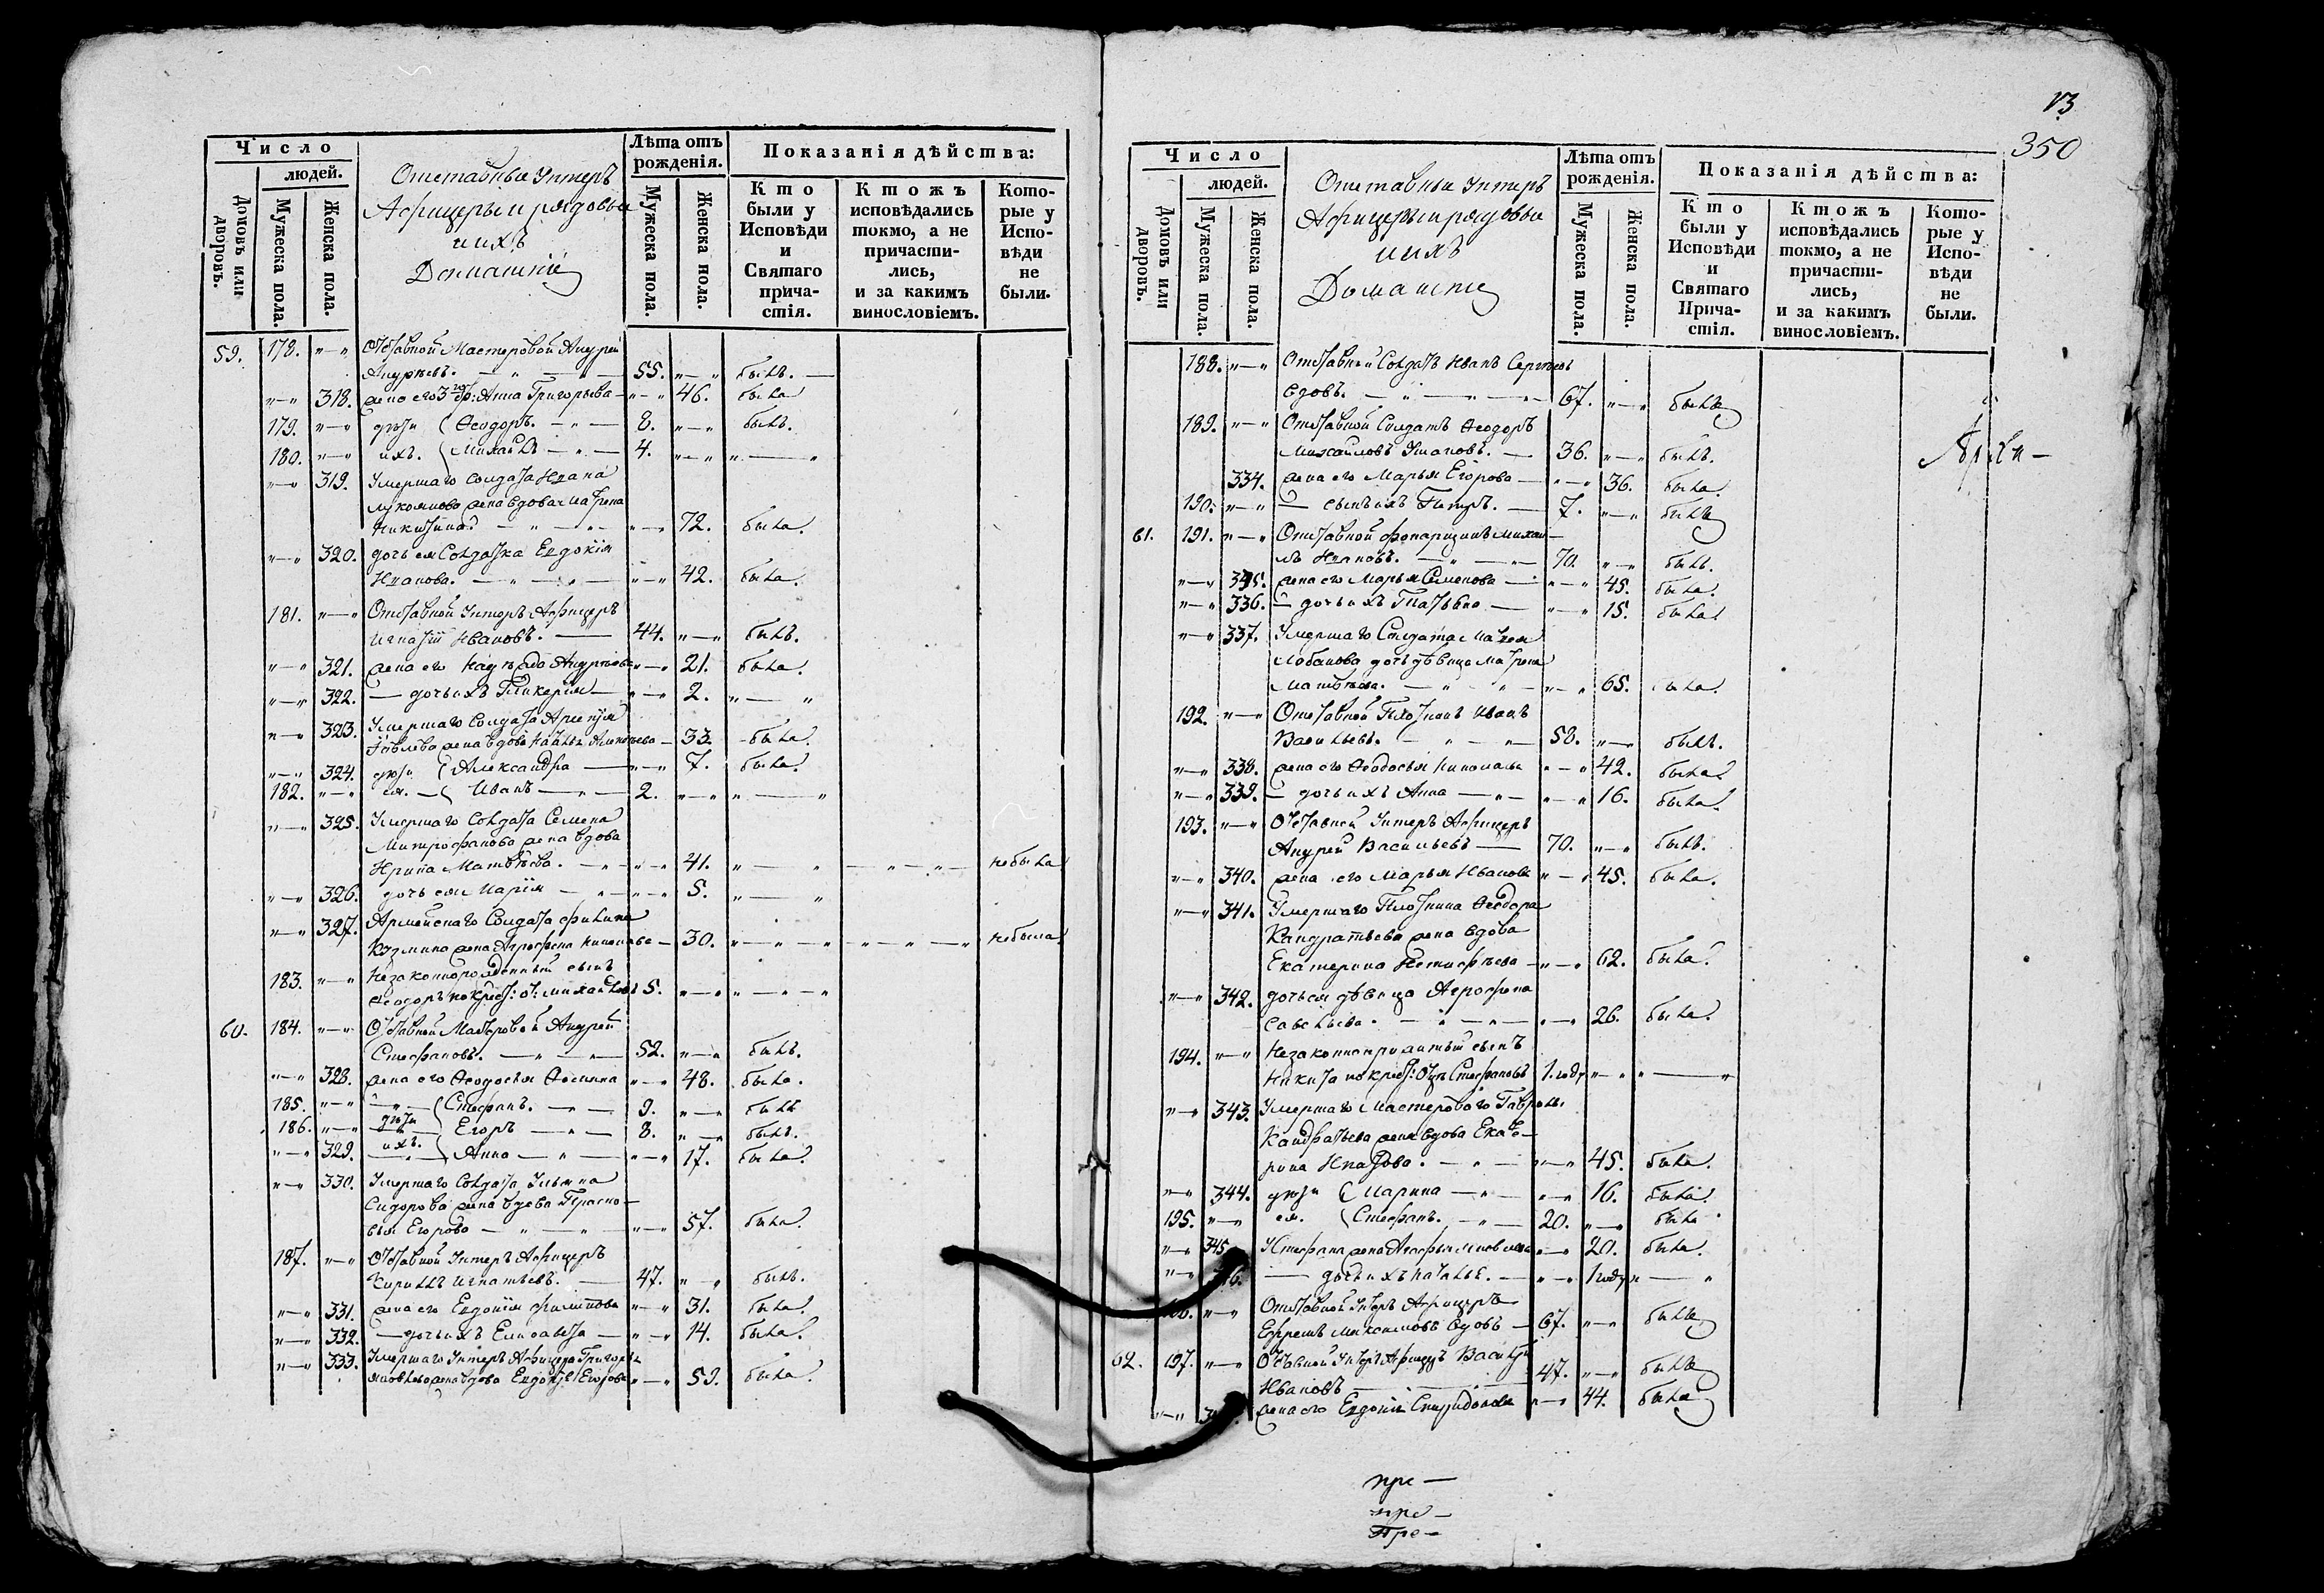 Число
людей.
Домовъ или дворовъ.
Мужеска пола.
Женска пола.
Отставныи Унтеръ
Афицеры и рядовыи
и ихъ
Домашнїи
Лѣта отъ
рожденія.
Мужеска пола.
Женска пола.
Показанія дѣйства:
Кто
были у
Исповѣди
и
Святаго
прича-
стія.
Ктожъ
исповѣдались
токмо, а не
причасти-
лись,
и за какимъ
винословіемъ.
Кото-
рые у
Испо-
вѣди
не
были.
59. 178. Отставной Мастеровой Андрей
Андреевъ. 55. былъ.
318. жена его 3го бр: Анна Григорьева 46. была
179. дѣти Ѳеодоръ. 8. былъ.
180. ихъ. Михаилъ 4.
319. Умершаго Солдата Ивана
Лукоянова жена вдова Матрена
Никитина 72. была.
320. дочь ея Солдатка Евдокія
Иванова. 42. была.
181. Отставной Унтеръ Афицеръ
Игнатій Ивановъ. 44. былъ.
321. жена его Надежда Андреева 21. была.
322. дочь ихъ Гликерія 2.
323. Умершаго Солдата
жена вдова 33. была.
324. дѣти Александра 7. была.
182. ея. Иванъ 2.
325. Умершаго Солдата Семена
Митрофанова жена вдова
Ирина Матвѣева. 41. небыла
326. дочь ея Марія 5.
327. Армейскаго Солдата Филипа
Козмина жена Агрофена 30. небыла
183. Незаконнорожденный сынъ
Ѳеодоръ по крест: от: Михайловъ 5.
60. 184. Отставной Мастеровой Андрей
Стефановъ. 52. былъ.
328. жена его Ѳеодосья 48. была.
185. Стефанъ. 9. былъ
186. дѣти Егоръ 8. былъ.
329. ихъ. Анна 17. была.
330. Умершаго Солдата Ульяна
Сидорова жена вдова Параско-
вья Егорова 57. была.
187. Отставной Унтеръ Афицеръ
Кирилъ Игнатьевъ. 47. былъ.
331. жена его Евдокія Филипова 31. была.
332. дочь ихъ Елисавета 14. была.
333. Умершаго Унтеръ Афицера Григорья
Яковлева жена вдова Евдокія Егорова 59. была.
73
350
Число
людей.
Домовъ или дворовъ.
Мужеска пола.
Женска пола.
Отставныи Унтеръ
Афицеры и рядовыи
и ихъ
Домашние
Лѣта отъ
рожденія.
Мужеска пола.
Женска пола.
Показанія дѣйства:
Кто
были у
Исповѣди
и
Святаго
Прича-
стія.
Ктожъ
исповѣдались
токмо, а не
причасти-
лись,
и за какимъ
винословіемъ.
Кото-
рые у
Испо-
вѣди
не
были.
188. Отставной Солдатъ Иванъ Сергеевъ
вдовъ. 67. былъ
189. Отставной Солдатъ Ѳеодоръ
Михайловъ Ушаковъ. 36. былъ.
334. жена его Марья Егорова 36. была.
190. сынъ ихъ Петръ. 7. былъ
61. 191. Отставной фонарщикъ Михаи-
лъ Ивановъ. 70. былъ.
335. жена его Марья Семенова 45. была.
336. дочь ихъ Татьяна 15. была
337. Умершаго Солдата Матвея
Лобанова дочь дѣвица Матрена
Матвѣева. 65. была.
192. Отставной Плотникъ Иванъ
Васильевъ. 58. былъ.
338. жена его Ѳеодосья 42. была
339. дочь ихъ Анна 16. была
193. Отставной Унтеръ Афицеръ
Андрей Васильевъ 70. былъ.
340. жена его Марья Иванова 45. была.
341. Умершаго Плотника Ѳеодора
Кандратьева жена вдова
Екатерина 62. была
342. дочь ея дѣвица Агрофена
Савельева. 26. была.
194. Незаконноприжитый сынъ
Никита по крест: Отцу Стефановъ 1. году
343. Умершаго Мастероваго Гаврилы
Кандратьева жена вдова Екате-
рина 45. была.
344. дѣти Марина 16. была.
195. ея. Стефанъ. 20. былъ
345. У Стефана жена 20. была.
дочь ихъ Наталья. 1 году
Отставной Унтеръ Афицеръ
Ефремъ Максимовъ вдовъ 67. былъ
62. 197. Отставной Унтеръ Афицеръ Василей
Ивановъ 47. былъ
жена его Евдокія Спиридонова 44. была
пре —
пре —
Пре —